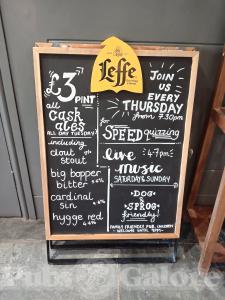 Leffe
£3
PINT
all
Cask
ales
ALL DAY TUESDAY
including
clout
stout
big bopper
bitter
cardinal
sin
hygge red
JOIN
US
EVERY
THURSDAY
from 7.30pm
for
SPEED quizzing
live 4-7pm
music
SATURDAY & SUNDAY
DOG
&
SPROG
friendly!
FAMILY FRIENDLY PUB, CHILDREN
WELCOME UNTIL